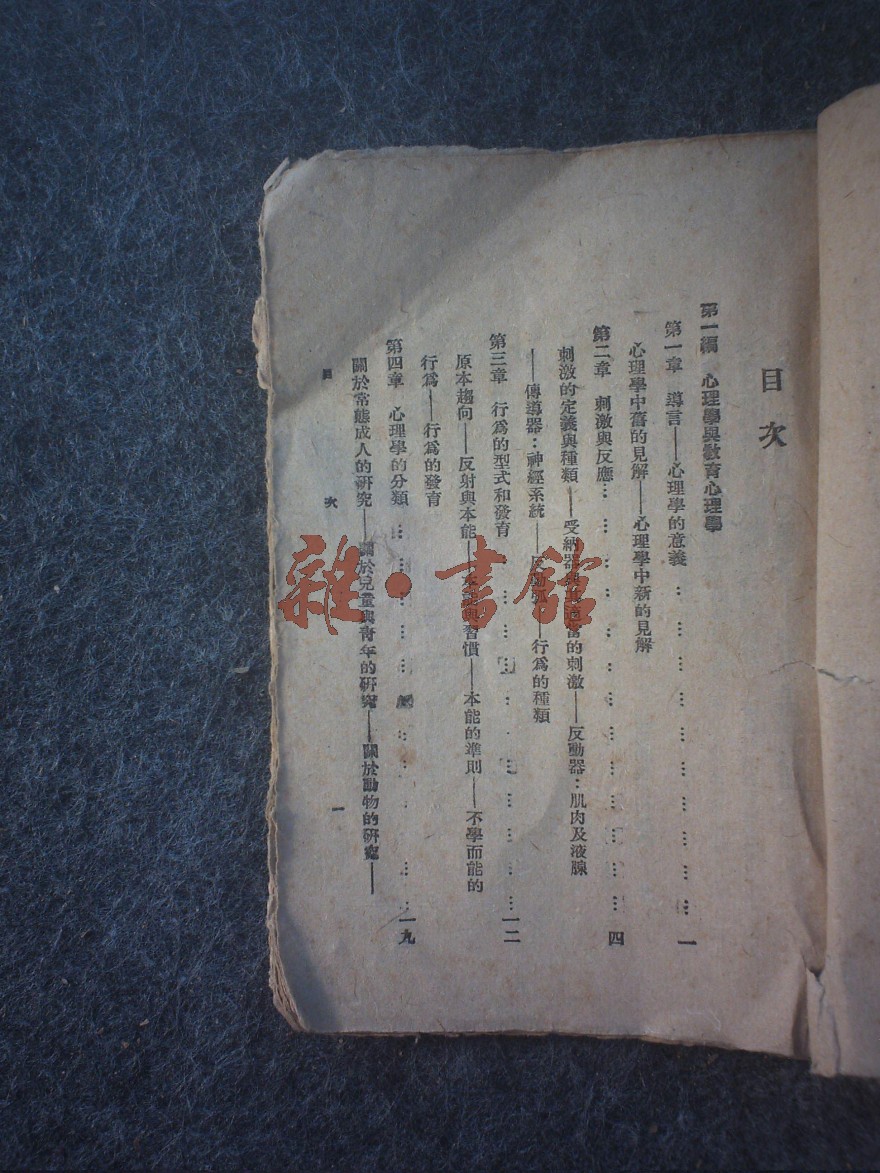 目次
第一編 心理學與教育心理學
第一章 導言——心理學的意義………………一
心理學中舊的見解——心理學中新的見解
第二章 刺激與反應………………四
刺激的定義與種類——受納器與其適當的刺激——反動器：肌肉及液腺
——傳導器：神經系統——反動弧——行爲的種類
第三章 行爲的型式和發育………………一二
原本趨向——反射與本能——本能與習慣——本能的準則——不學而能的
行爲——行爲的發育
第四章 心理學的分類………………一九
關於常態成人的研究——關於兒童與青年的研究——關於動物的研究——
目次 一
雜·書館